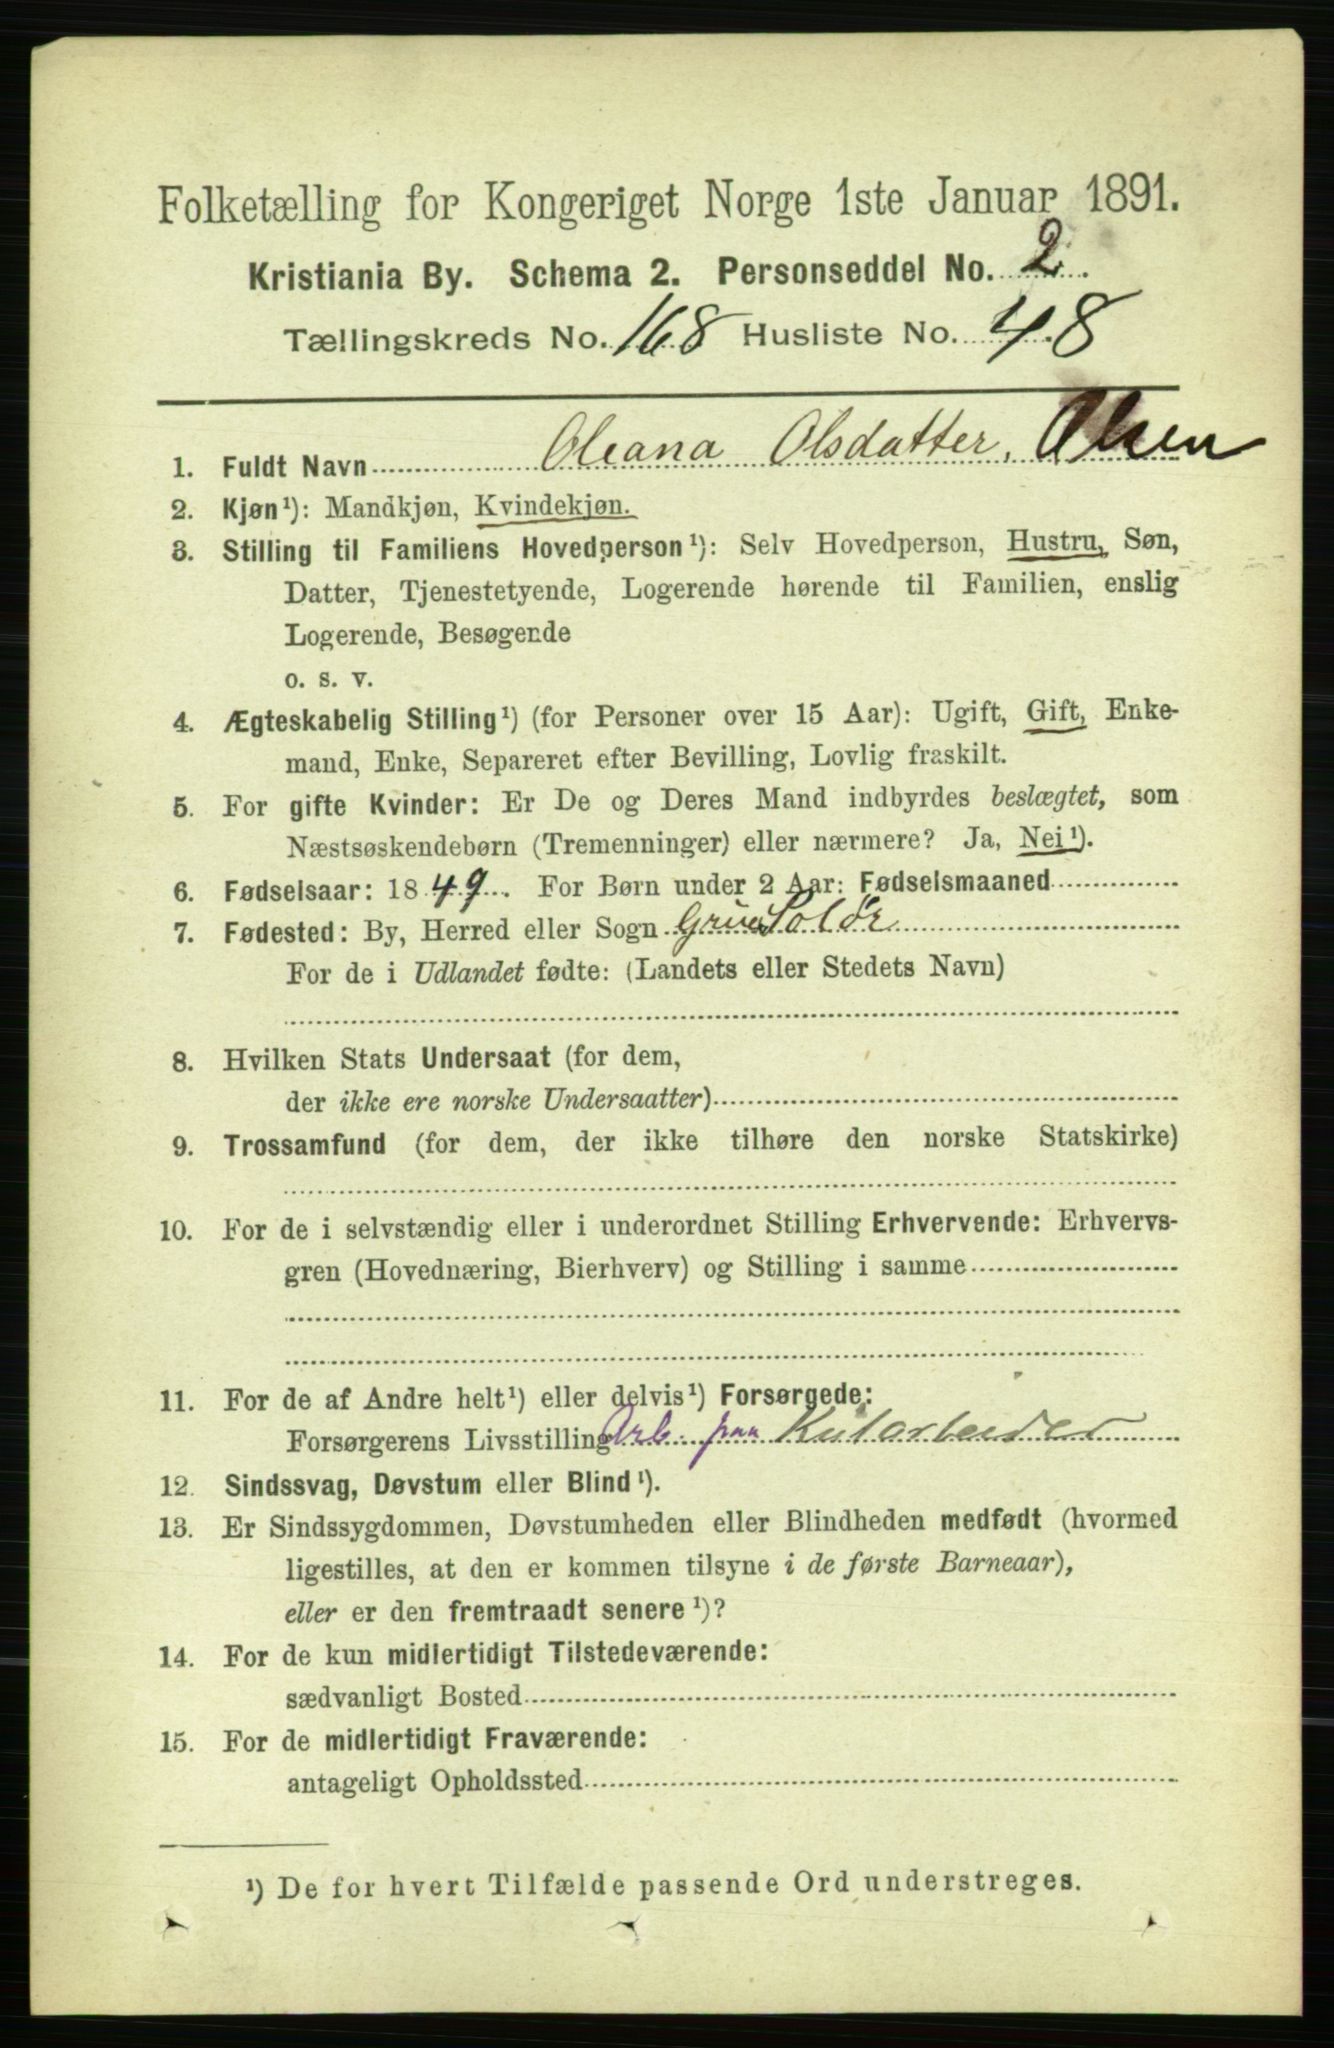 Folketælling for Kongeriget Norge 1ste Januar 1891.
Kristiania By. Schema 2. Personseddel No. 2
Tællingskreds No. 168 Husliste No. 48
1. Fuldt Navn Oleana Olsdatter, Olsen
2. Kjøn¹): Mandkjøn, Kvindekjøn.
3. Stilling til Familiens Hovedperson¹): Selv Hovedperson, Hustru, Søn,
Datter, Tjenestetyende, Logerende hørende til Familien, enslig
Logerende, Besøgende
o. s. v.
4. Ægteskabelig Stilling¹) (for Personer over 15 Aar): Ugift, Gift, Enke-
mand, Enke, Separeret efter Bevilling, Lovlig fraskilt.
5. For gifte Kvinder: Er De og Deres Mand indbyrdes beslægtet, som
Næstsøskendebørn (Tremenninger) eller nærmere? Ja, Nei¹).
6. Fødselsaar: 1849. For Børn under 2 Aar: Fødselsmaaned
7. Fødested: By, Herred eller Sogn Grue Solør
For de i Udlandet fødte: (Landets eller Stedets Navn)
8. Hvilken Stats Undersaat (for dem,
der ikke ere norske Undersaatter)
9. Trossamfund (for dem, der ikke tilhøre den norske Statskirke)
10. For de i selvstændig eller i underordnet Stilling Erhvervende: Erhvervs-
gren (Hovednæring, Bierhverv) og Stilling i samme
11. For de af Andre helt¹) eller delvis¹) Forsørgede:
Forsørgerens Livsstilling Arb. paa
12. Sindssvag, Døvstum eller Blind¹).
13. Er Sindssygdommen, Døvstumheden eller Blindheden medfødt (hvormed
ligestilles, at den er kommen tilsyne i de første Barneaar),
eller er den fremtraadt senere¹)?
14. For de kun midlertidigt Tilstedeværende:
sædvanligt Bosted
15. For de midlertidigt Fraværende:
antageligt Opholdssted
¹) De for hvert Tilfælde passende Ord understreges.